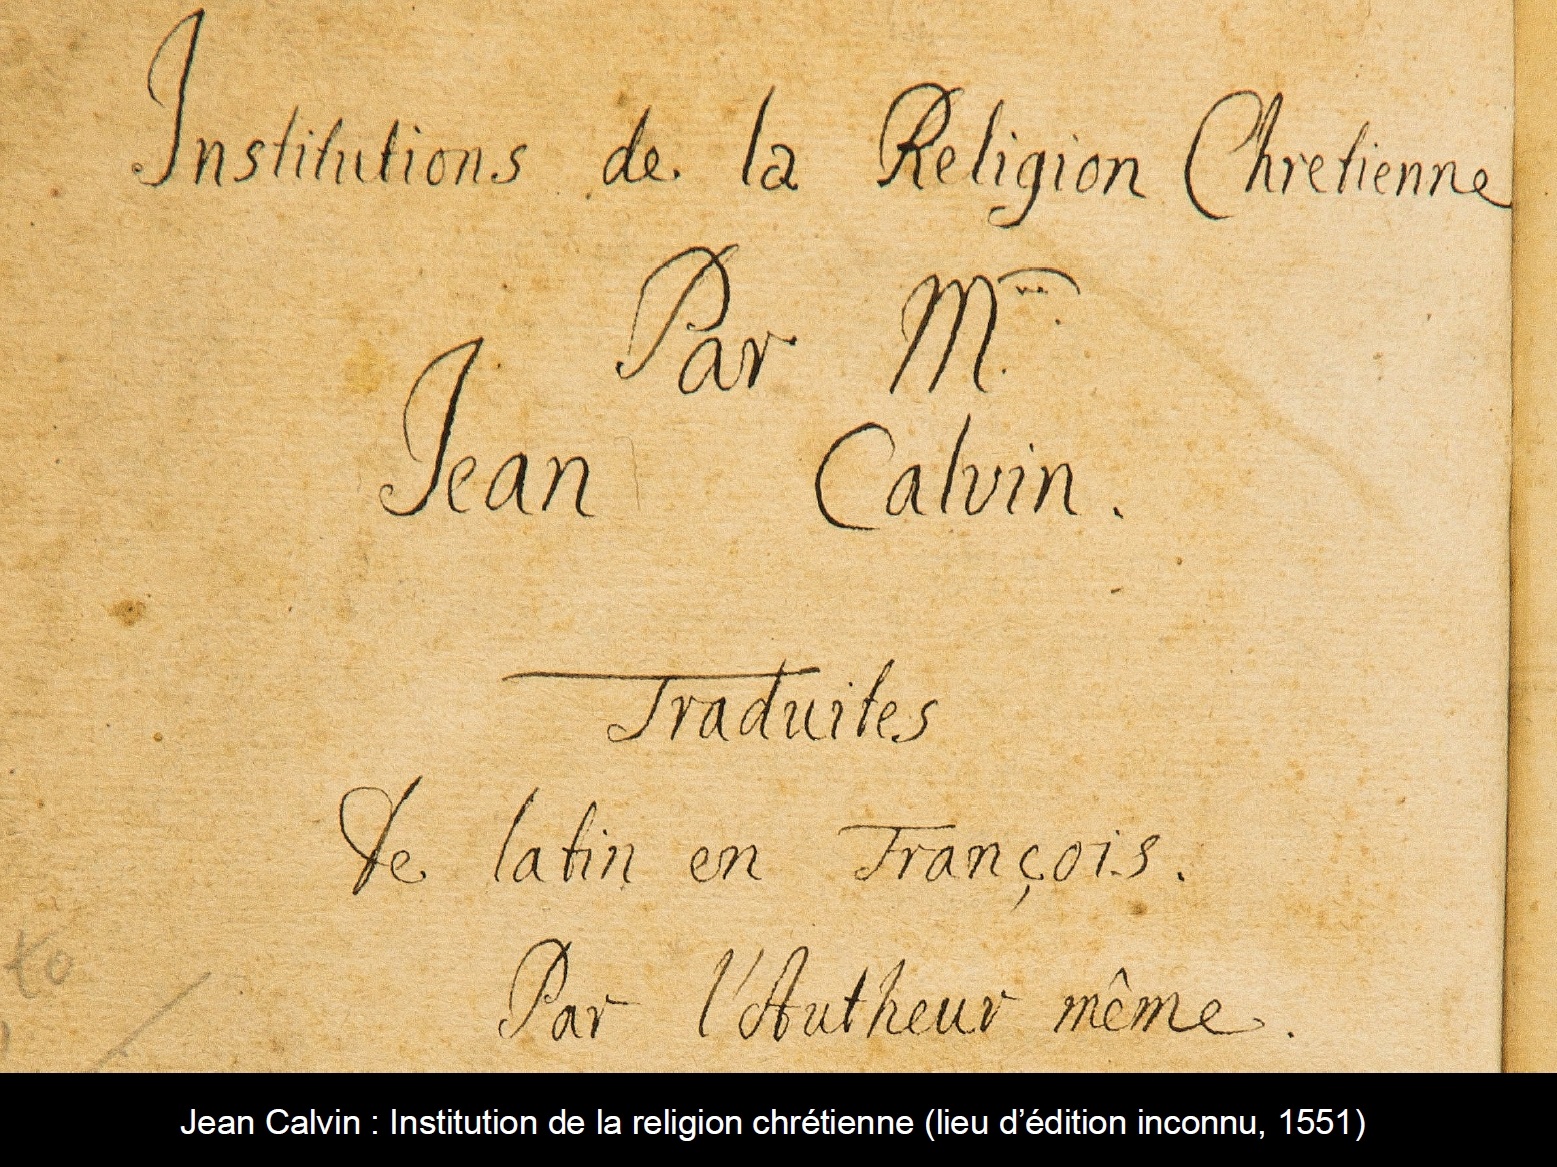 Institutions de la Religion Chretienne
Par M.
Jean Calvin.
Traduites
de latin en François.
Par l'Autheur même.
to
Jean Calvin : Institution de la religion chrétienne (lieu d’édition inconnu, 1551)